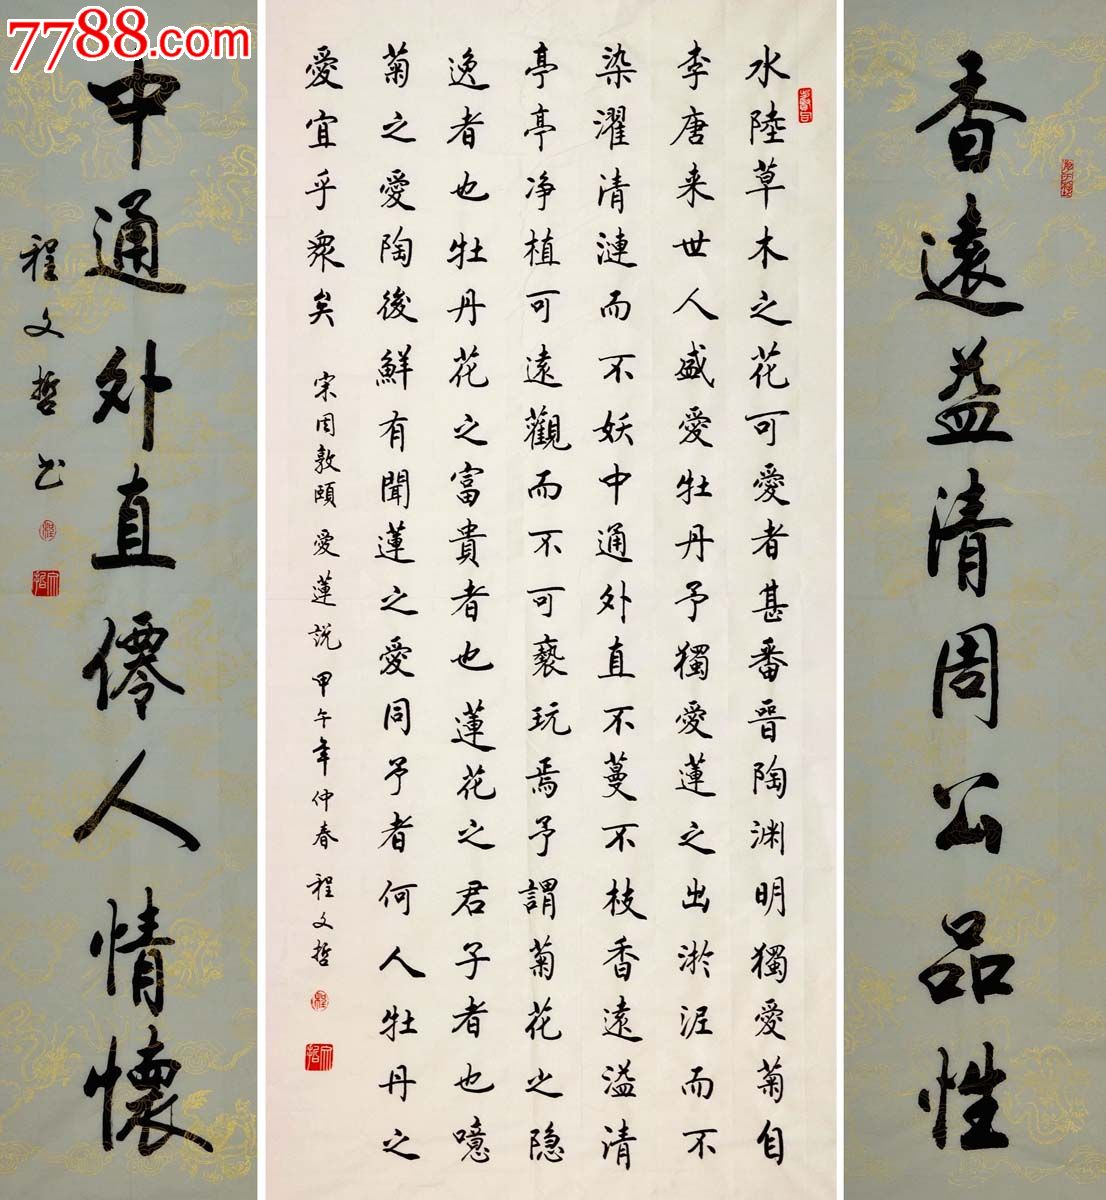 7788.com
香遠益清周公品性
水陸草木之花可愛者甚番晉陶渊明獨愛菊自
李唐来世人盛愛牡丹予獨愛蓮之出淤泥而不
染濯清漣而不妖中通外直不蔓不枝香遠溢清
亭亭净植可遠觀而不可褻玩焉予謂菊花之隐
逸者也牡丹花之富貴者也蓮花之君子者也噫
菊之愛陶後鮮有聞蓮之愛同予者何人牡丹之
愛宜乎衆矣 宋周敦頤 愛蓮説 甲午年仲春 程文哲
中通外直僊人情懷
程文哲书